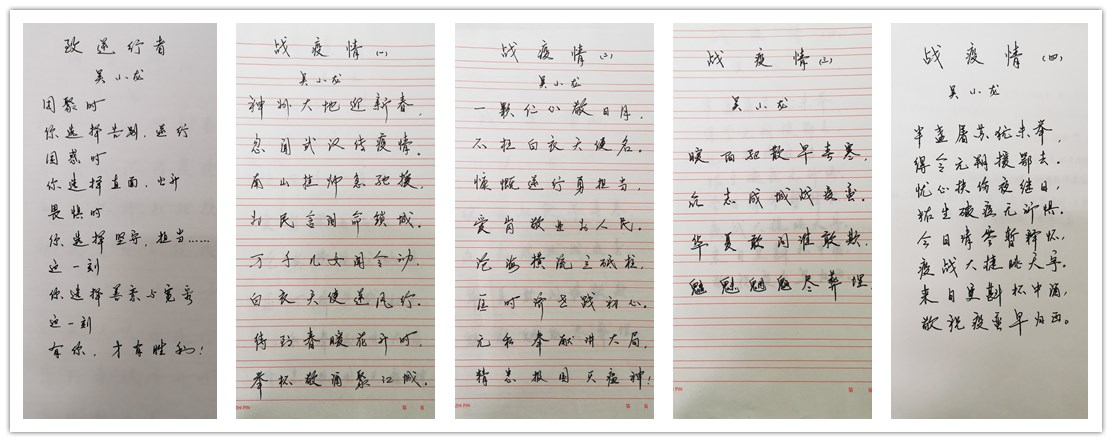 致逆行者
吴小龙
团聚时
你选择告别，逆行
困惑时
你选择直面，出征
畏惧时
你选择坚守，担当……
这一刻
你选择善柔与宽容
这一刻
有你，才有胜利！
战疫情（一）
吴小龙
神州大地迎新春，
忽闻武汉传疫情。
南山挂帅急驰援，
为民请命锁城。
万千儿女闻令动，
白衣天使逆风行。
待到春暖花开时，
举杯敬酒聚江城。
战疫情（二）
吴小龙
一颗仁心敬日月，
不枉白衣天使名。
慷慨逆行勇担当，
爱岗敬业为人民。
沧海横流立砥柱，
匡时济世践初心。
无私奉献讲大局，
精忠报国灭瘟神！
战疫情（三）
吴小龙
暖雨驱散早春寒，
众志成城战疫蛮。
华夏敢问谁敢欺，
魑魅魍魉尽葬埋。
战疫情（四）
吴小龙
半盏屠苏犹未举，
得令元朔援鄂去。
忧心扶伤夜继日，
佑生破疫无所惧。
今日请答暂释怀，
疫战大捷眺天宇。
来日更斟杯中酒，
敬祝疫蛮早归西。